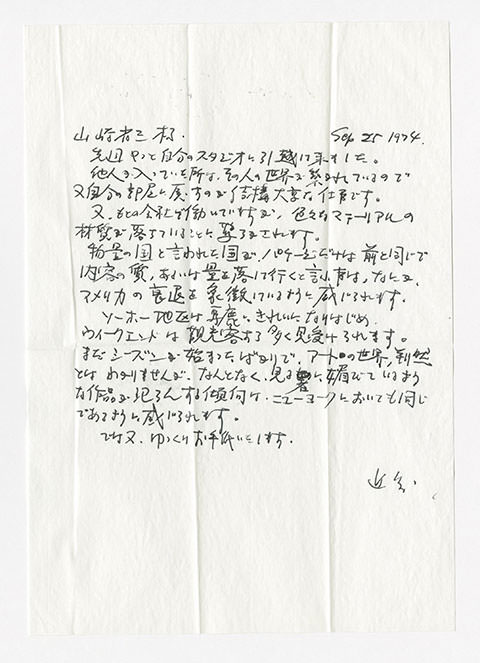 山崎省三様. Sep 25 1974.
先週やっと自分のスタジオに引越して来ました。
他人が入っていた所は、その人の世界で築かれているので
又自分の部屋に戻すのが結構大変な仕事です。
又、もとの会社で働いていますが、色々なマテーリアルの
材質が落ちていることに驚かされます。
物量の国と言われた国が、パッケージだけは前と同じで
内容の質、あるいは量を落して行くと言う事は、なにか
アメリカの衰退を象徴しているように感じられます。
ソーホー地区は華麗に、きれいになりはじめ、
ウイークエンドは観光客が多く見受けられます。
まだシーズンが始まったばかりで、アートの世界、判然
とはわかりませんが、なんとなく、見る者に媚びているよう
な作品が氾らんする傾向は、ニューヨークにおいても同じ
であるように感じられます。
では又、ゆっくりお手紙いたします.
近